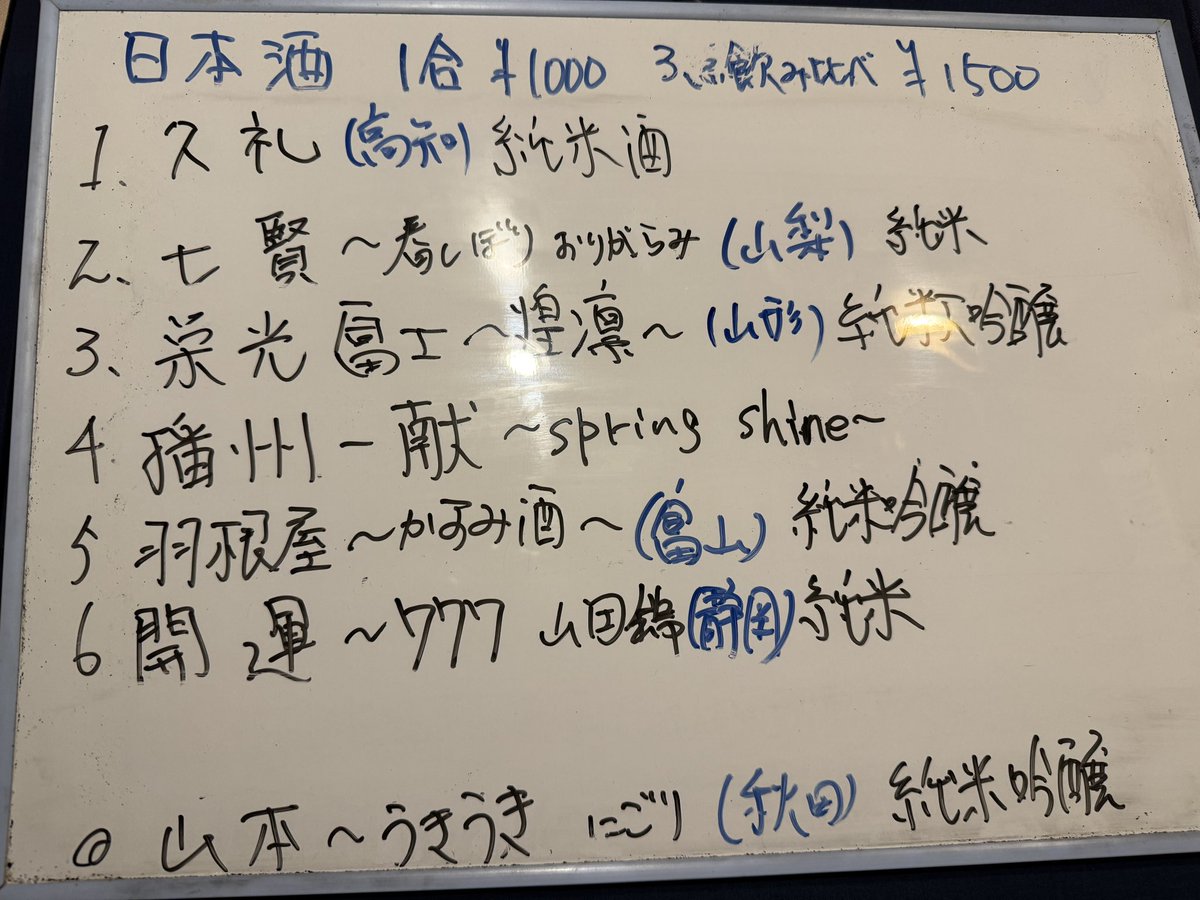 日本酒 1合 ¥1000 3点飲み比べ ¥1500
1、久礼(高知)純米酒
2、七賢～春しぼり おりがらみ(山梨)純米
3、栄光冨士～煌凛～(山形)純米大吟醸
4 播州一献～spring shine～
5 羽根屋～かすみ酒～(富山)純米吟醸
6 開運～777 山田錦(静岡)純米
◎ 山本～うきうき にごり(秋田)純米吟醸